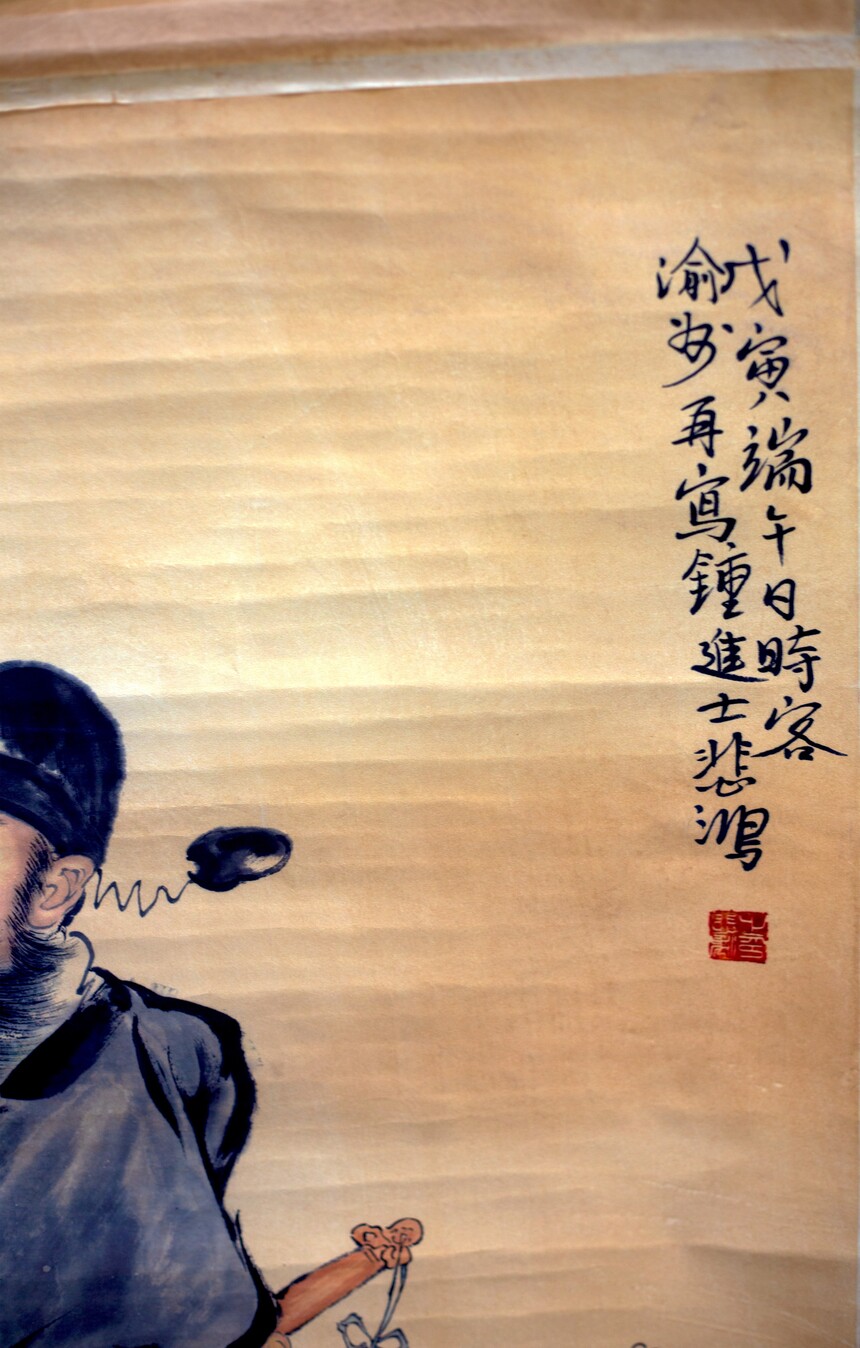 戊寅端午日時客
渝州再寫鍾進士悲鴻